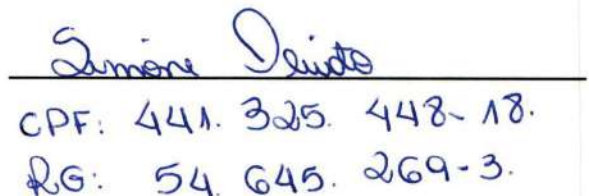 Simone
CPF: 441. 325. 448-18.
RG: 54. 645. 269-3.